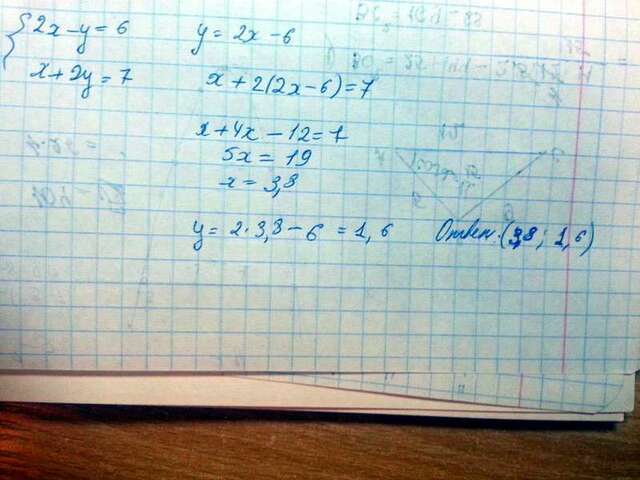 2x - y = 6
x + 2y = 7
y = 2x - 6
x + 2(2x - 6) = 7
x + 4x - 12 = 7
5x = 19
x = 3,8
y = 2·3,8 - 6 = 1,6
Ответ: (3,8; 1,6)